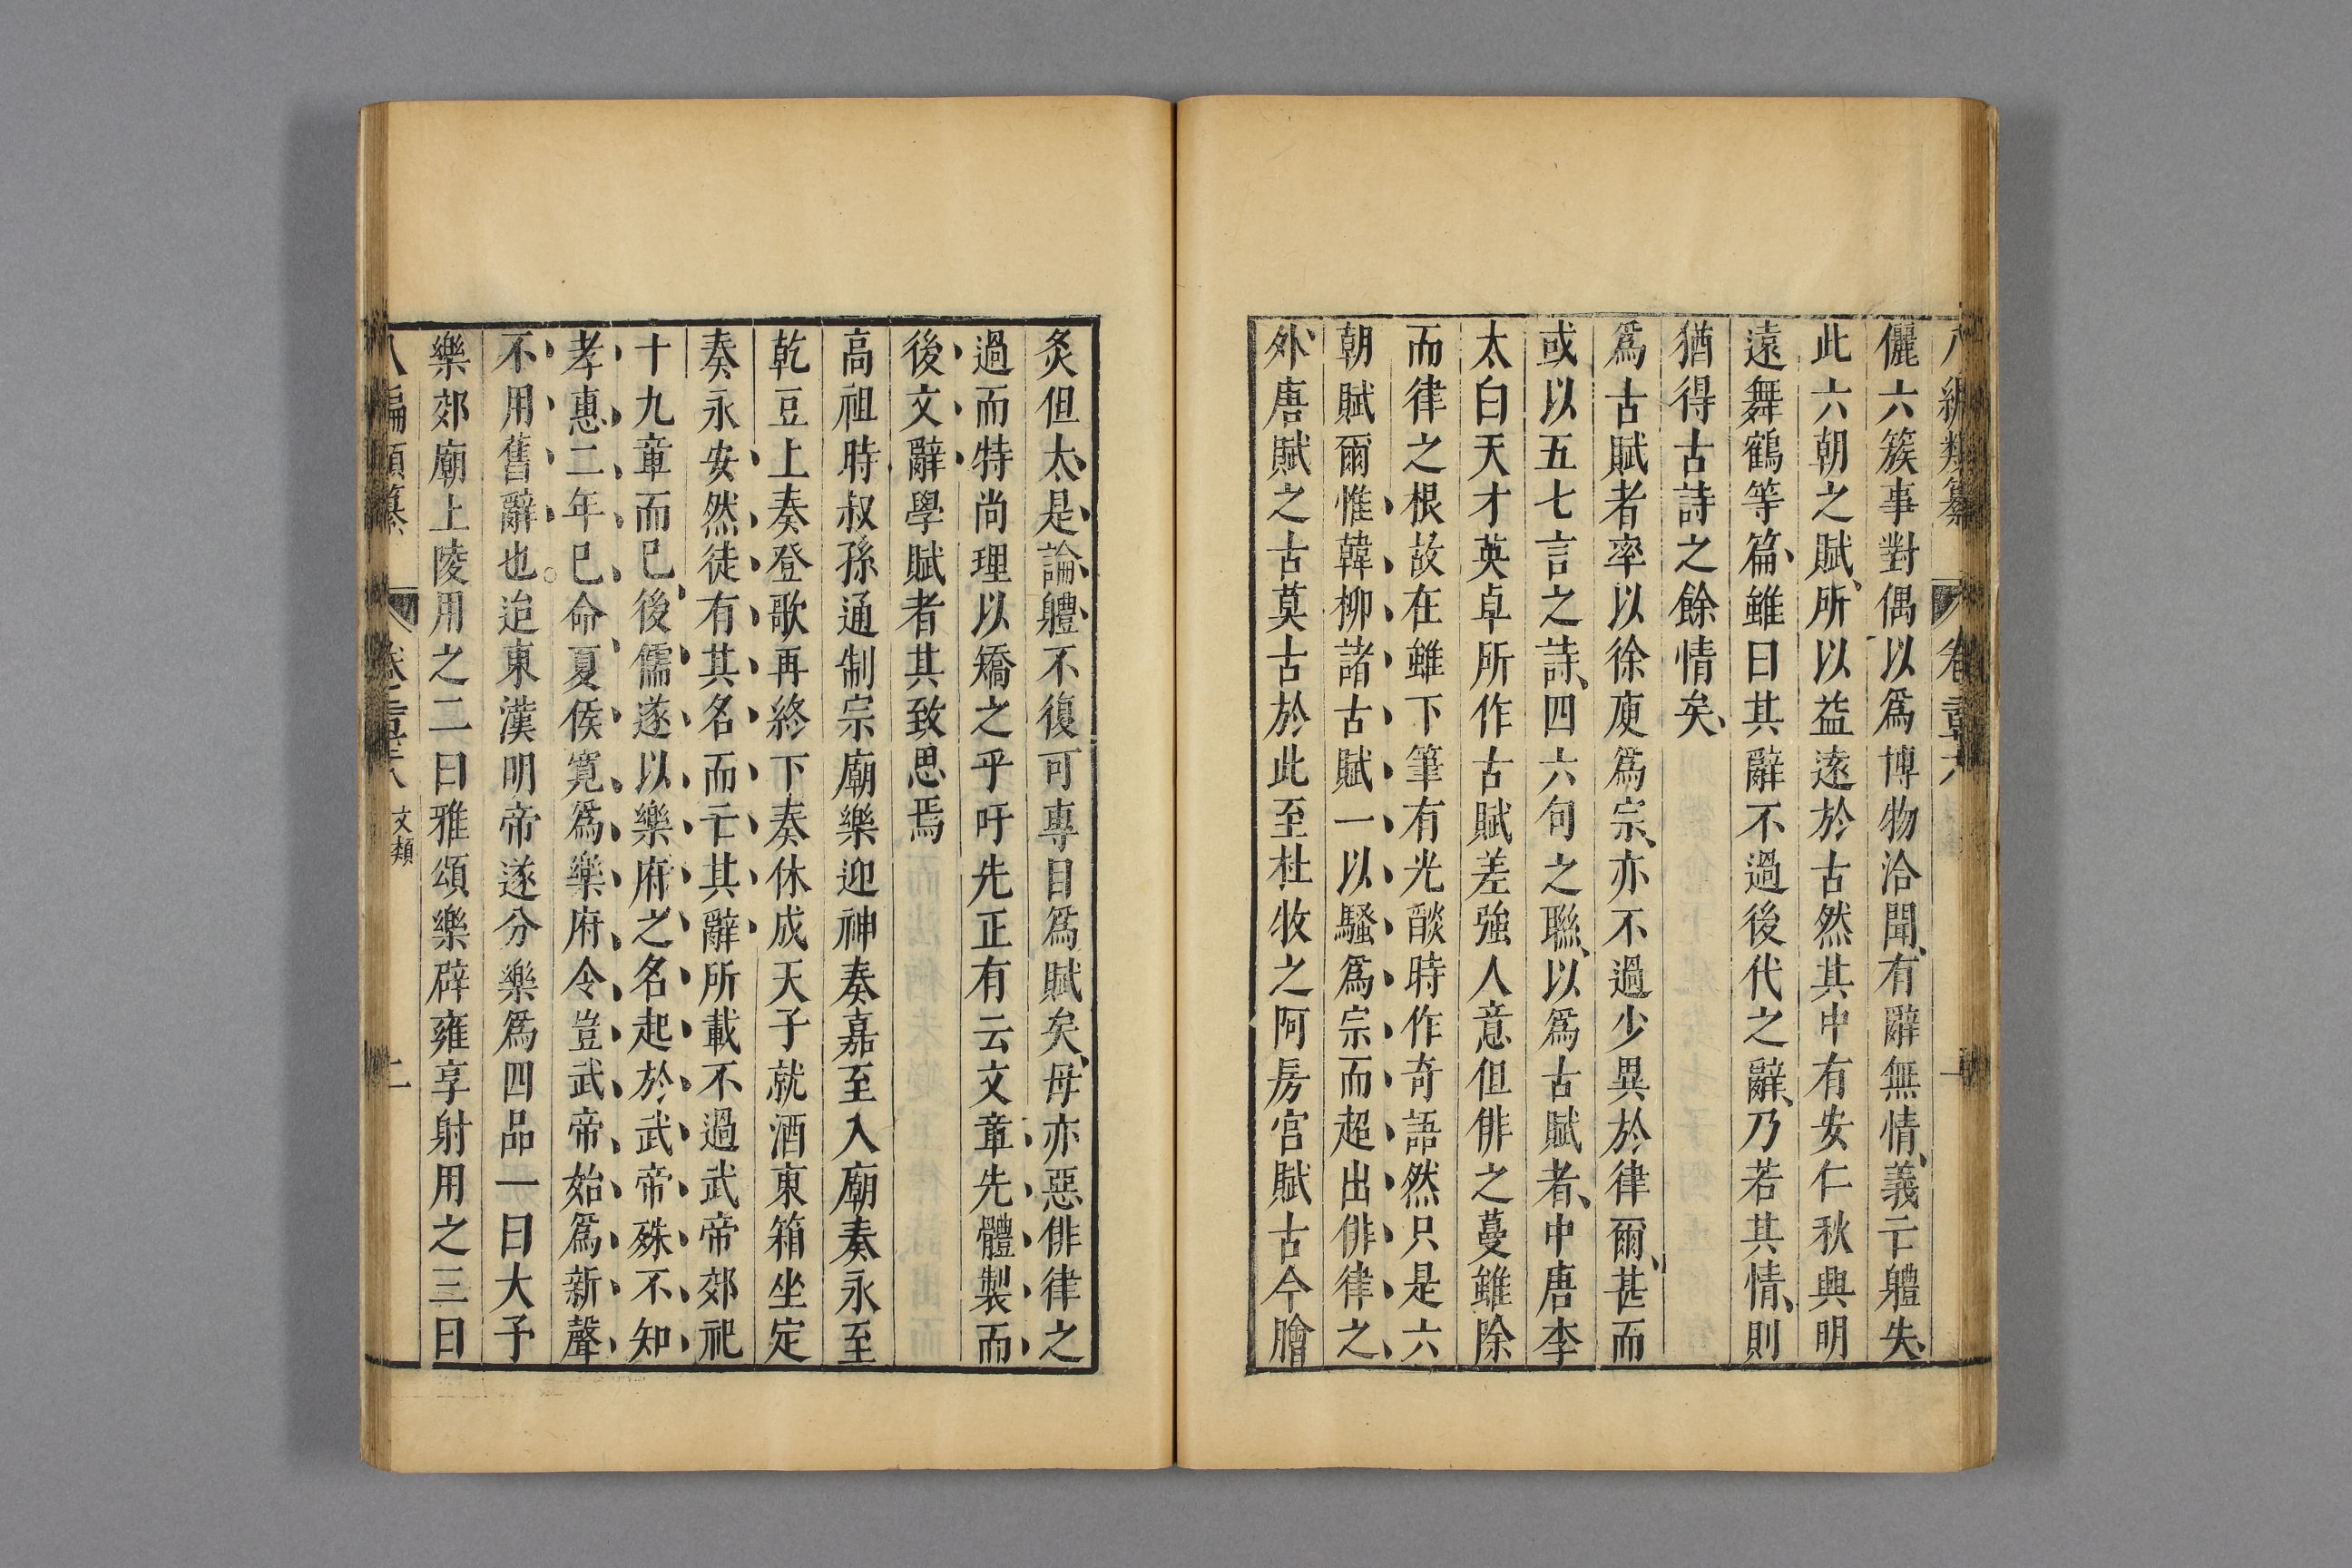 儷六簇事對偶以爲博物洽聞有辭無情義亡軆失
此六朝之賦所以益遠於古然其中有安仁秋興明
遠舞鶴等篇雖曰其辭不過後代之辭乃若其情則
猶得古詩之餘情矣
爲古賦者率以徐庾爲宗亦不過少異於律爾甚而
或以五七言之詩四六句之聯以爲古賦者中唐李
太白天才英卓所作古賦差強人意但俳之蔓雖除
而律之根故在雖下筆有光燄時作奇語然只是六
朝賦爾惟韓柳諸古賦一以騷爲宗而超出俳律之
外唐賦之古莫古於此至杜牧之阿房宮賦古今膾
炙但太是論軆不復可專目爲賦矣毋亦惡俳律之
過而特尚理以矯之乎吁先正有云文章先體製而
後文辭學賦者其致思焉
高祖時叔孫通制宗廟樂迎神奏嘉至入廟奏永至
乾豆上奏登歌再終下奏休成天子就酒東箱坐定
奏永安然徒有其名而亡其辭所載不過武帝郊祀
十九章而已後儒遂以樂府之名起於武帝殊不知
孝惠二年已命夏侯寬爲樂府令豈武帝始爲新聲
不用舊辭也迨東漢明帝遂分樂爲四品一曰大予
樂郊廟上陵用之二曰雅頌樂辟雍享射用之三曰
文類
二